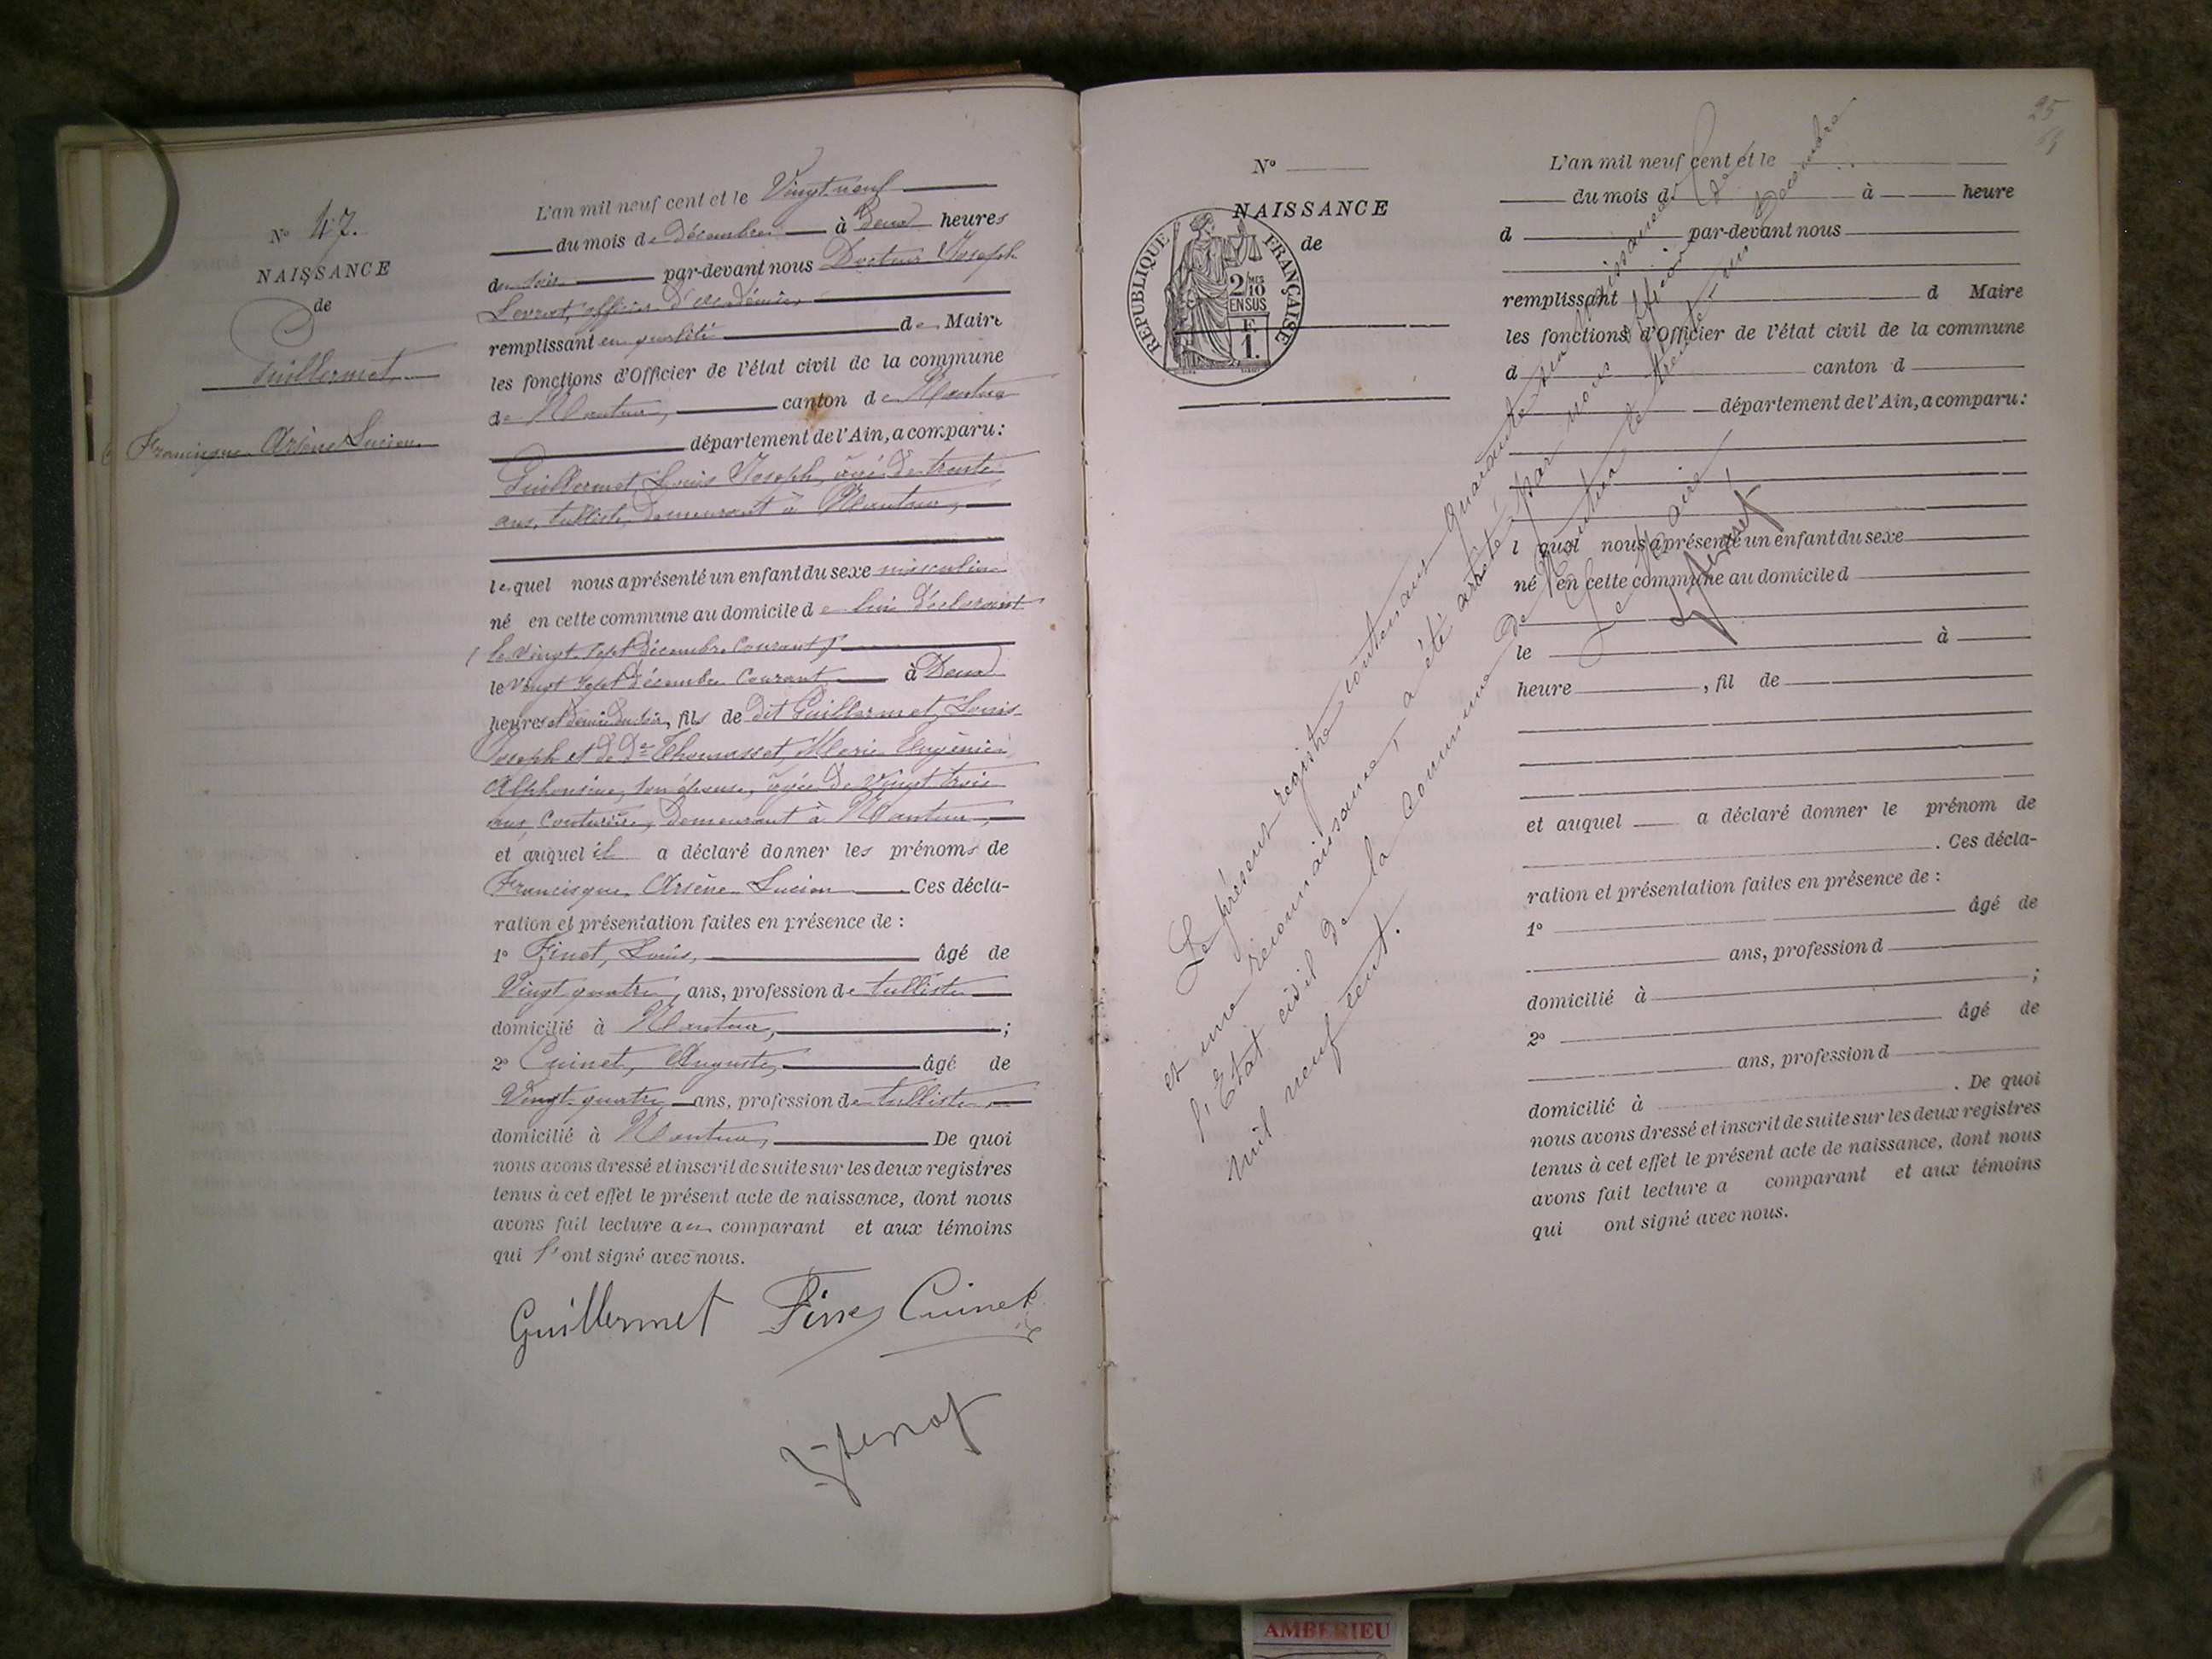 Nº 47.
NAISSANCE
de
Guillermet
Francisque Arsène Lucien
L'an mil neuf cent et le Vingt neuf
du mois de Décembre à Deux heures
du soir par-devant nous Docteur Joseph
officier d'académie
remplissant en qualité de Maire
les fonctions d'Officier de l'état civil de la commune
de Nantua, canton de Nantua
département de l'Ain, a comparu :
Guillermet Louis Joseph, âgé de trente
ans, tulliste, demeurant à Nantua,
lequel nous a présenté un enfant du sexe masculin
né en cette commune au domicile de lui déclarant
( le vingt sept décembre courant )
le vingt sept décembre courant, à Deux
heures et demie du soir, fils de dit Guillermet, Louis
Joseph et de De Thomasset, Marie Eugénie
Alphonsine, son épouse, âgée de vingt trois
ans, couturière, demeurant à Nantua,
et auquel il a déclaré donner les prénoms de
Francisque Arsène Lucien Ces décla-
ration et présentation faites en présence de :
1º Finet, Louis, âgé de
Vingt quatre ans, profession de tulliste
domicilié à Nantua, ;
2º Cuinet, Auguste, âgé de
Vingt quatre ans, profession de tulliste
domicilié à Nantua, De quoi
nous avons dressé et inscrit de suite sur les deux registres
tenus à cet effet le présent acte de naissance, dont nous
avons fait lecture au comparant et aux témoins
qui l'ont signé avec nous.
Guillermet Cuinet
25
Nº
NAISSANCE
de
REPUBLIQUE FRANÇAISE
2/10 MES
EN SUS
F.
1.
L'an mil neuf cent et le
du mois d à heure
d par-devant nous
remplissant d Maire
les fonctions d'Officier de l'état civil de la commune
d canton d
département de l'Ain, a comparu :
l quel nous a présenté un enfant du sexe
né en cette commune au domicile d
le à
heure , fil de
et auquel a déclaré donner le prénom de
. Ces décla-
ration et présentation faites en présence de :
1º âgé de
ans, profession d
domicilié à ;
2º âgé de
ans, profession d
domicilié à . De quoi
nous avons dressé et inscrit de suite sur les deux registres
tenus à cet effet le présent acte de naissance, dont nous
avons fait lecture a comparant et aux témoins
qui ont signé avec nous.
Le présent registre contenant quarante sept naissances
et une reconnaissance, a été arrêté par nous officier de
l'Etat civil de la commune de Nantua le trente-un Décembre
mil neuf cent.
Le Maire,
AMBERIEU